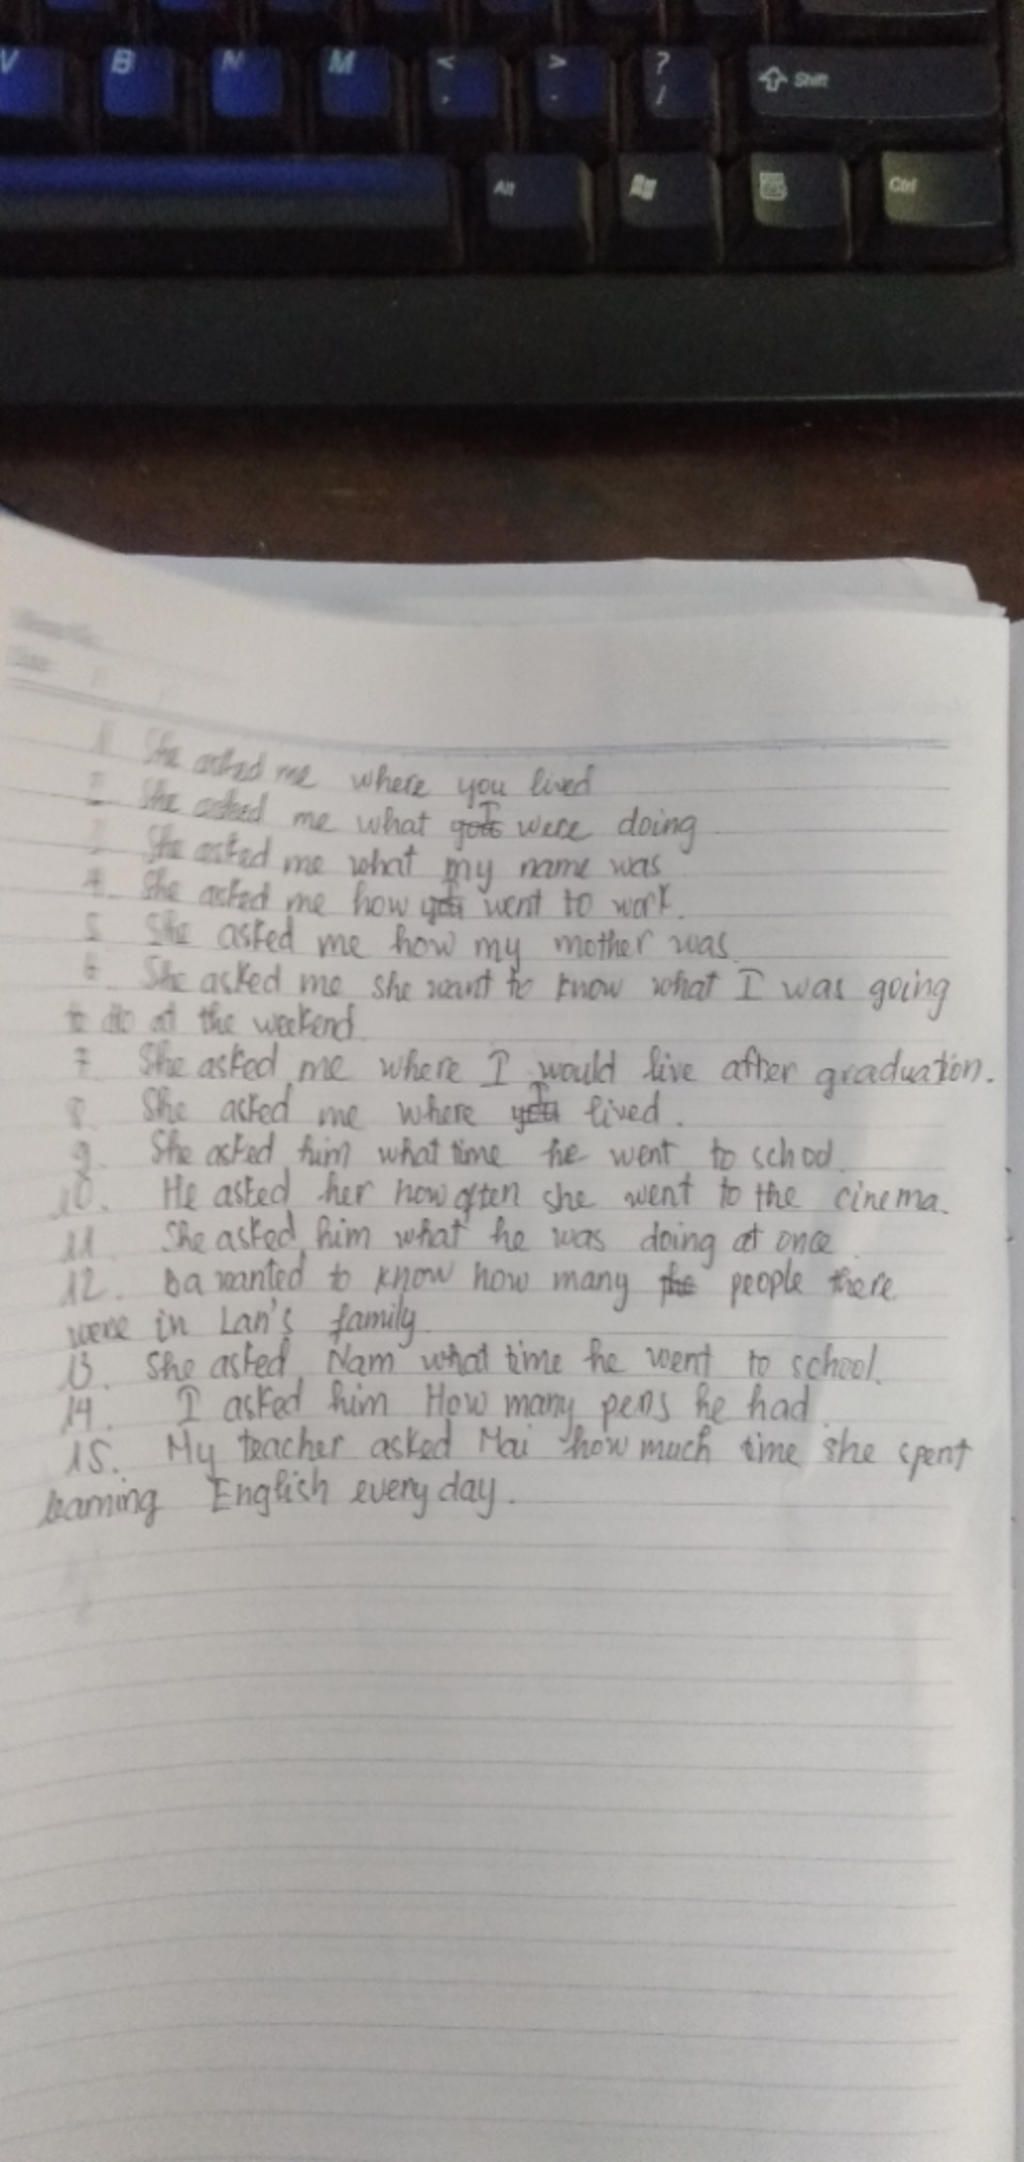 V B N M < , > . ? / Shift
Alt Ctrl
1 She asked me where you lived
2 She asked me what I were doing
3 She asked me what my name was
4. She asked me how I went to work.
5 She asked me how my mother was.
6. She asked me she want to know what I was going
to do at the weekend.
7. She asked me where I would live after graduation.
8. She asked me where I lived.
9. She asked him what time he went to school.
10. He asked her how often she went to the cinema.
11. She asked him what he was doing at once.
12. Ba wanted to know how many people there
were in Lan's family.
13. She asked Nam what time he went to school.
14. I asked him How many pens he had.
15. My teacher asked Mai how much time she spent
learning English every day.